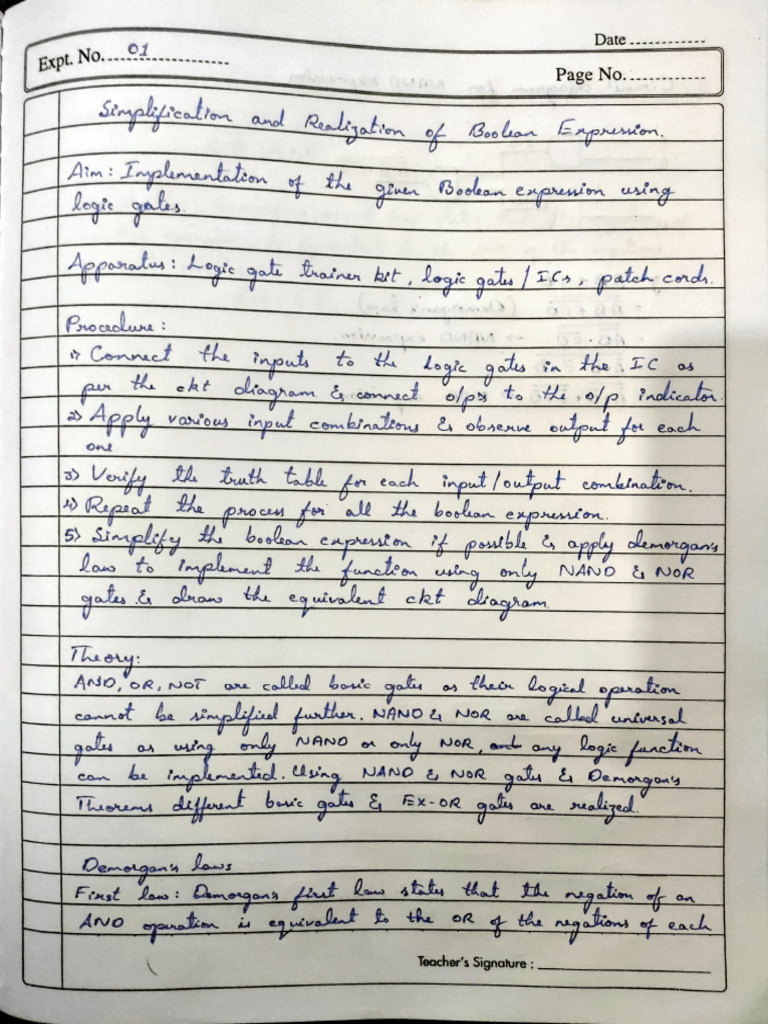 Date ............
Expt. No. 01
Page No. ............
Simplification and Realization of Boolean Expression.
Aim : Implementation of the given Boolean expression using
logic gates.
Apparatus : Logic gate trainer kit, logic gates / ICs, patch cords.
Procedure :
1) Connect the inputs to the logic gates in the IC as
per the ckt diagram & connect o/p's to the o/p indicator.
2) Apply various input combinations & observe output for each
one
3) Verify the truth table for each input/output combination.
4) Repeat the process for all the boolean expression.
5) Simplify the boolean expression if possible & apply demorgan's
law to implement the function using only NAND & NOR
gates & draw the equivalent ckt diagram
Theory:
AND, OR, NOT are called basic gates as their logical operation
cannot be simplified further. NAND & NOR are called universal
gates as using only NAND or only NOR, any logic function
can be implemented. Using NAND & NOR gates & Demorgan's
Theorems different basic gates & EX-OR gates are realized.
Demorgan's laws
First law : Demorgan's first law states that the negation of an
AND operation is equivalent to the OR of the negations of each
Teacher's Signature :